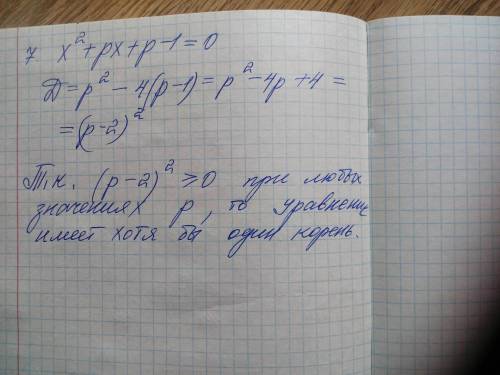 7 x²+px+p-1=0
D=p²-4(p-1)=p²-4p+4=
=(p-2)²
Т.к. (p-2)²≥0 при любых
значениях p, то уравнение
имеет хотя бы один корень.